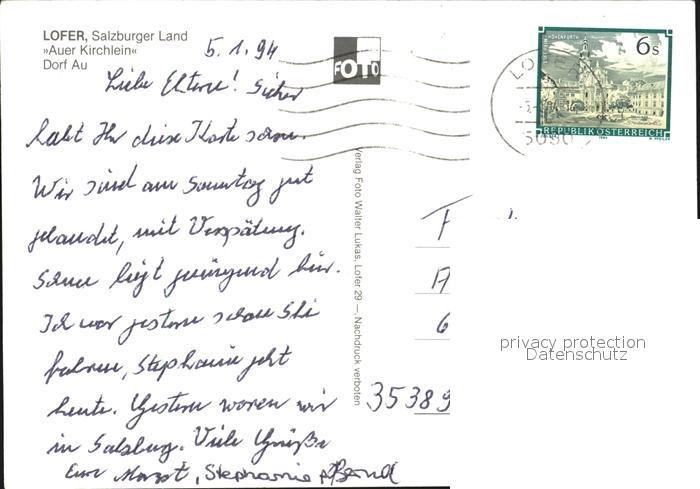 LOFER, Salzburger Land
»Auer Kirchlein«
Dorf Au
5.1.94
Liebe Eltern! Sicher
habt Ihr diese Karte schon.
Wir sind am Sonntag gut
gelandet, mit Verspätung.
Schnee liegt genügend hier.
Ich war gestern schon Ski
fahren, Stephanie geht
heute. Gestern waren wir
in Salzburg. Viele Grüße
Eure Stephanie + Bernd
FOTO
Verlag Foto Walter Lukas, Lofer 29 —, Nachdruck verboten
6 S
REPUBLIK ÖSTERREICH
LOFER
5090
F
A
6
35389
privacy protection
Datenschutz